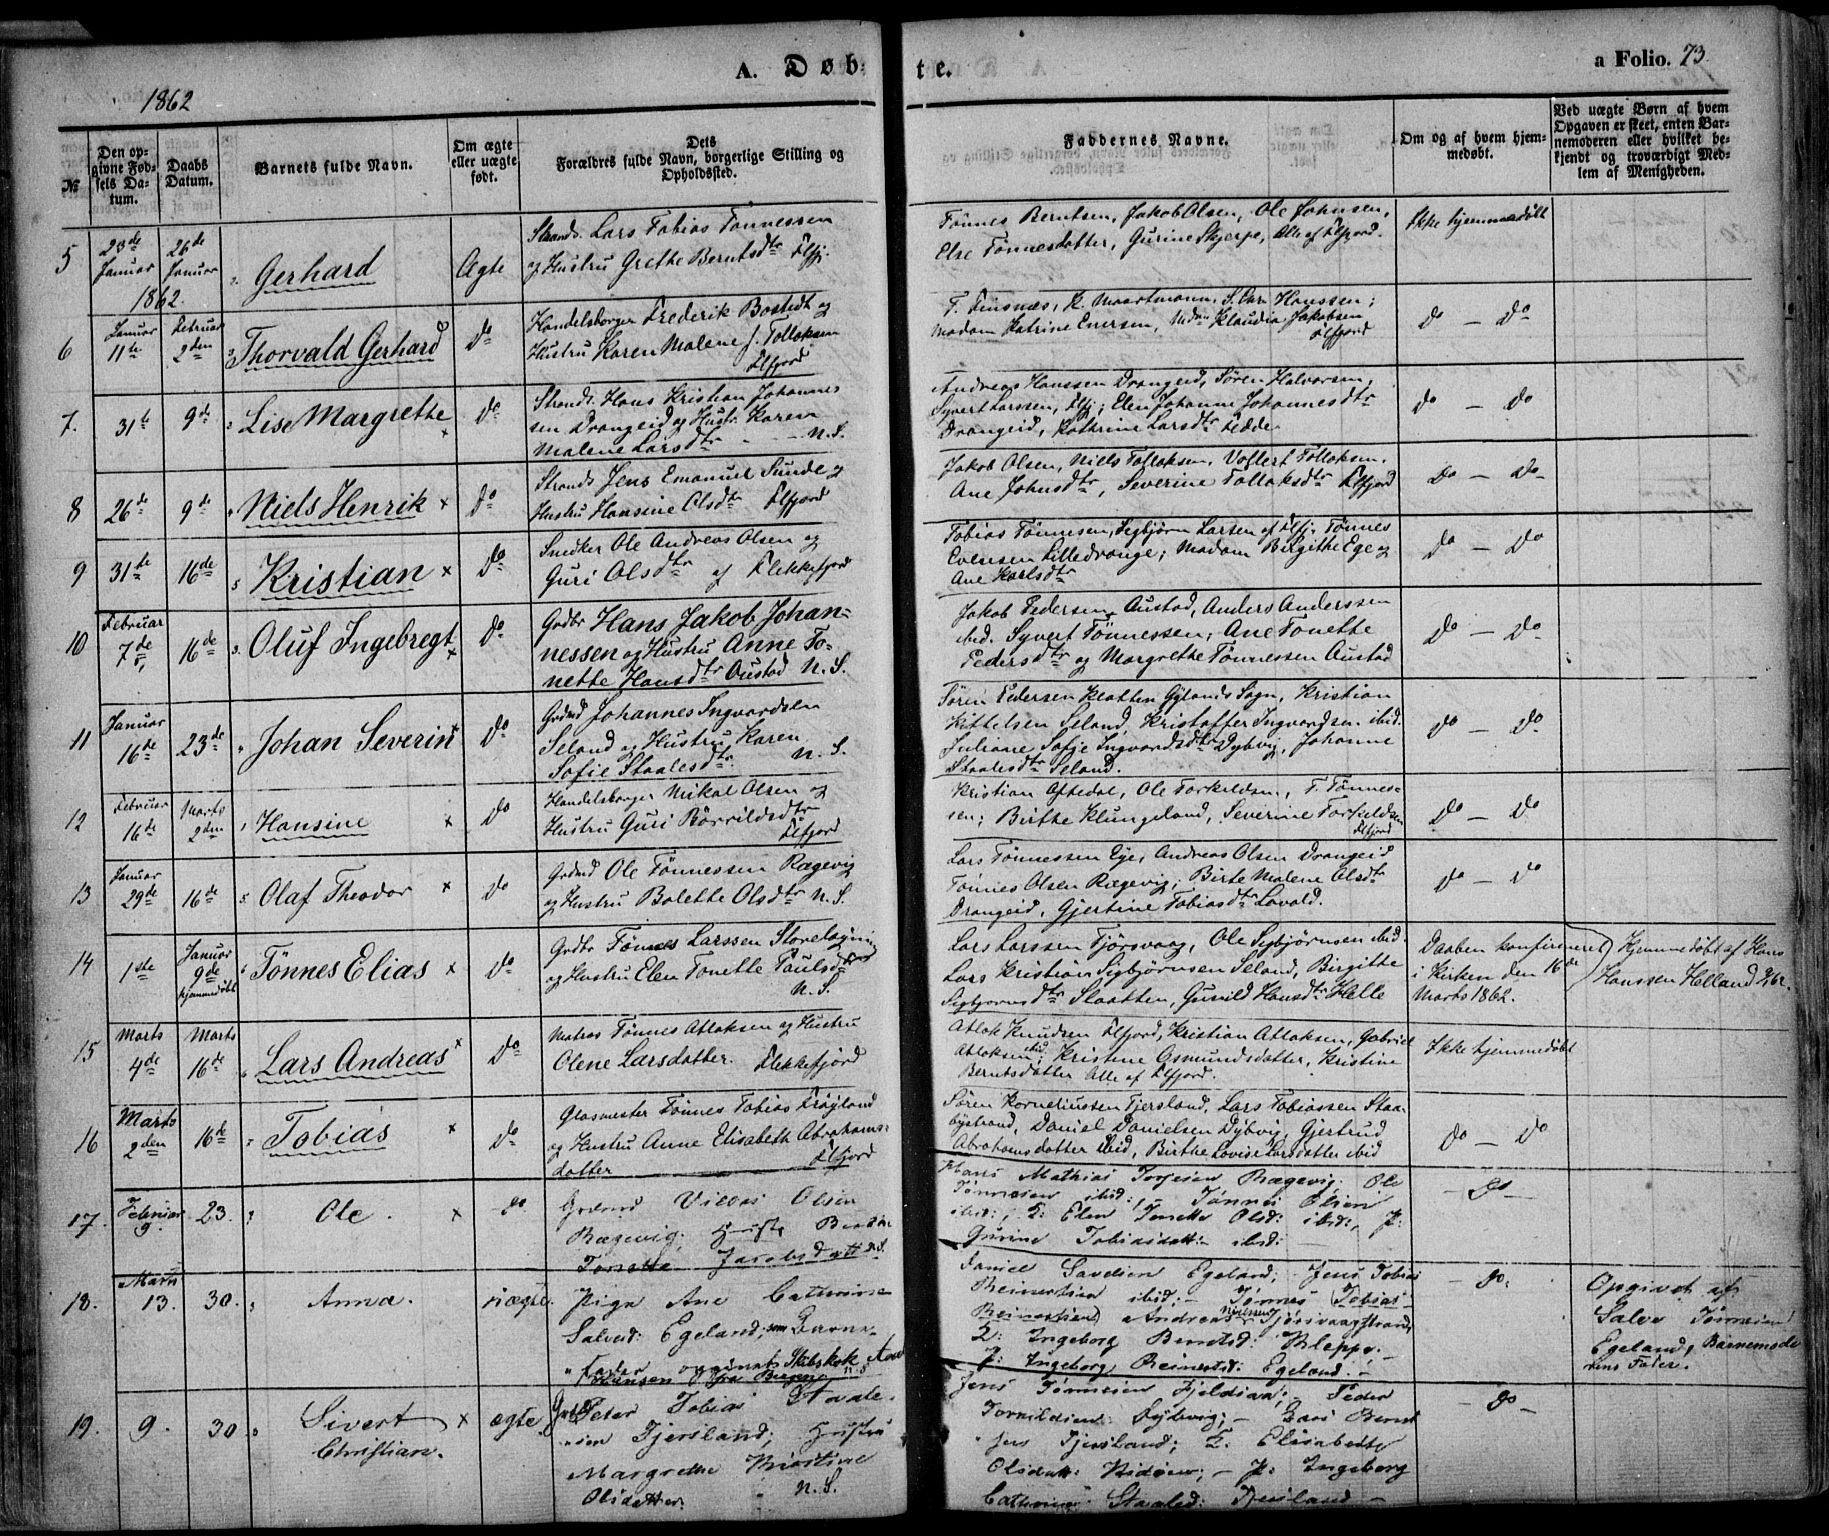 1862
A. Døbte.
a Folio. 73.
№
Den opgivne Fødsels Datum.
Daabs Datum.
Barnets fulde Navn.
Om ægte eller uægte født.
Dets Forældres fulde Navn, borgerlige Stilling og Opholdssted.
Faddernes Navne.
Om og af hvem hjemmedøbt.
Ved uægte Børn af hvem Opgaven er skeet, enten Barnemoderen eller hvilket bekjendt og troværdigt Medlem af Menigheden.
5
23de Januar 1862.
26de Januar
Gerhard
Ægte
Strands. Lars Tobias Tønnessen
og Hustru Grethe Berntsdtr Flfj.
Tønnes Berntsen, Jakob Olsen, Ole Johnsen,
Else Tønnesdatter, Gurine Skjerpe, Alle af Flfjord.
Ikke hjemmedøbt
6
Januar 11te
Februar 2den
Thorvald Gerhard
Do
Handelsborger Frederik Bostedt og
Hustru Karen Malene f. Tollaksen
Flfjord
F. Finsnæs, P. Maartmann, S. Chr. Hanssen;
Madam Katrine Enersen, Mdm Klaudia Jakobsen
Flfjord
Do — Do
7.
31te
9de
Lise Margrethe ×
Do
Strands. Hans Kristian Johannes
sen Drangeid og Hustr. Karen
Malene Larsdtr N.S.
Andreas Hanssen Drangeid, Søren Halvorsen,
Syvert Larssen, Flfj; Elen Johanne Johannesdtr
Drangeid, Kathrine Larsdtr Fedde
Do — Do
8
26de
9de
Niels Henrik ×
Do
Strands Jens Emanuel Sunde og
Hustru Hansine Olsdtr Flfjord
Jakob Olsen, Niels Tollaksen, Vollert Tollaksen,
Ane Johnsdtr, Severine Tollaksdtr Flfjord
Do — Do
9
31te
16de
Kristian ×
Do
Snedker Ole Andreas Olsen og
Guri Olsdtr af Flekkefjord
Tobias Tønnesen, Sigbjørn Larsen af Flfj. Tønnes
Evensen Lilledrange; Madam Birgithe Ege og
Ane Karlsdtr
Do — Do
10
Februar 7de
16de
Oluf Ingebregt ×
Do
Grdbr Hans Jakob Johan=
nessen og Hustru Anne To-
nette Hansdtr Austad N.S.
Jakob Pedersen Austad, Anders Anderssen
ibid. Syvert Tønnessen; Ane Tonette
Pedersdtr og Margrethe Tønnessen Austad
Do — Do
11
Januar 16de
23de
Johan Severin ×
Do
Grdmd Johannes Ingvardsen
Seland og Hustru Karen
Sofie Staalesdtr. N.S.
Søren Pedersen Klatten Gylands Sogn, Kristian
Kittelsen Seland, Kristoffer Ingvardsen ibid.
Juliane Sofie Ingvardsdtr Dybvig, Johanne
Staalesdtr Seland.
Do — Do
12
Februar 16de
Marts 2den
Hansine ×
Do
Handelsborger Mikal Olsen og
Hustru Guri Børrildsdtr
Flfjord
Kristian Aftedal, Ole Torkildsen, T. Tønnes-
sen; Birthe Klungeland, Severine Torkeldsen
Flfjord
Do — Do
13
Januar 29de
16de
Olaf Theodor ×
Do
Grdmd Ole Tønnessen Rægevig
og Hustru Bolette Olsdtr N.S.
Lars Tønnessen Eye, Andreas Olsen Drangeid
Tønnes Olsen Rægevig; Birte Malene Olsdtr
Drangeid, Gjertine Tobiasdtr Lavold.
Do — Do
14
1ste
Januar 9de hjemmedøbt
Tønnes Elias ×
Do
Grdbr Tønnes Larssen Storeløgning
og Hustru Elen Tonette Paulsdtr
N.S.
Lars Larssen Tjørsvaag, Ole Sigbjørnsen ibid.
Lars Kristian Sigbjørnsen Seland, Birgitte
Sigbjørnsdtr Slaatten, Gunild Hansdtr Helle
Daaben konfirmeret
i Kirken den 16de
Marts 1862.
Hjemmedøbt af Hans
Hanssen Helland
15
Marts 4de
Marts 16de
Lars Andreas ×
Do
Matros Tønnes Atlaksen og Hustru
Olene Larsdatter. Flekkefjord
Atlak Knudsen Flfjord, Kristian Atlaksen, Gabriel
Atlaksen ibid; Kristene Osmundsdatter, Kristine
Berntsdatter Alle af Flfjord.
Ikke hjemmedøbt
16
Marts 2den
16de
Tobias ×
Do
Glasmester Tønnes Tobias Frøyland
og Hustru Anne Elisabeth Abrahams-
datter Flfjord
Søren Korneliussen Tjersland, Lars Tobiassen Staa-
bystrand, Daniel Danielsen Dybvig, Gjertrud
Abrahamsdatter ibid, Birthe Lovise Larsdatter ibid
Do — Do
17.
Februar 9.
23.
Ole. ×
Do
Gadmd Vilvas Olsen
Rægevig; Hustr Berthe
Tonette Jacobsdatt N.S.
Hans Mathias Torjesen Rægevig; Ole
Tønnesen ibid: Tønnes Olsen
ibid; F: Elen Tonette Olsd: ibid:, P:
Gurine Tobiasdatt: ibid:
Do
18.
Marts 13.
30.
Anna.
uægte.
Pige Ane Cathrine
Salvesd: Egeland; som Barne-
Fader opgivet Skibskok
Hansen fra Bergen
Daniel Davidsen Egeland; Jens Tobias
Reinertsen ibid; Tønnes Tobias
Reinertsen Andreas Nilsen Tjørsvaagstrand
F: Ingeborg Berntsd: Kleppe;
P: Ingeborg Reinertsd: Egeland.
Do.
Opgivet af
Salve Tønnesen
Egeland, Barnemode
rens Fader.
19.
9.
30.
Sivert Christian. ×
ægte
Peter Tobias Staale-
sen Tjersland; Hustru
Margrethe Kristine
Olsdatter. N.S.
Jens Tønnesen Fjeldsaa; Peder
Tornildsen: Dybvig; Lars Bernt
Jens Tjersland; F. Elisabeth
Olsdatt: Hidøen; P: Ingeborg
Cathrine Staalesd: Tjersland
Do